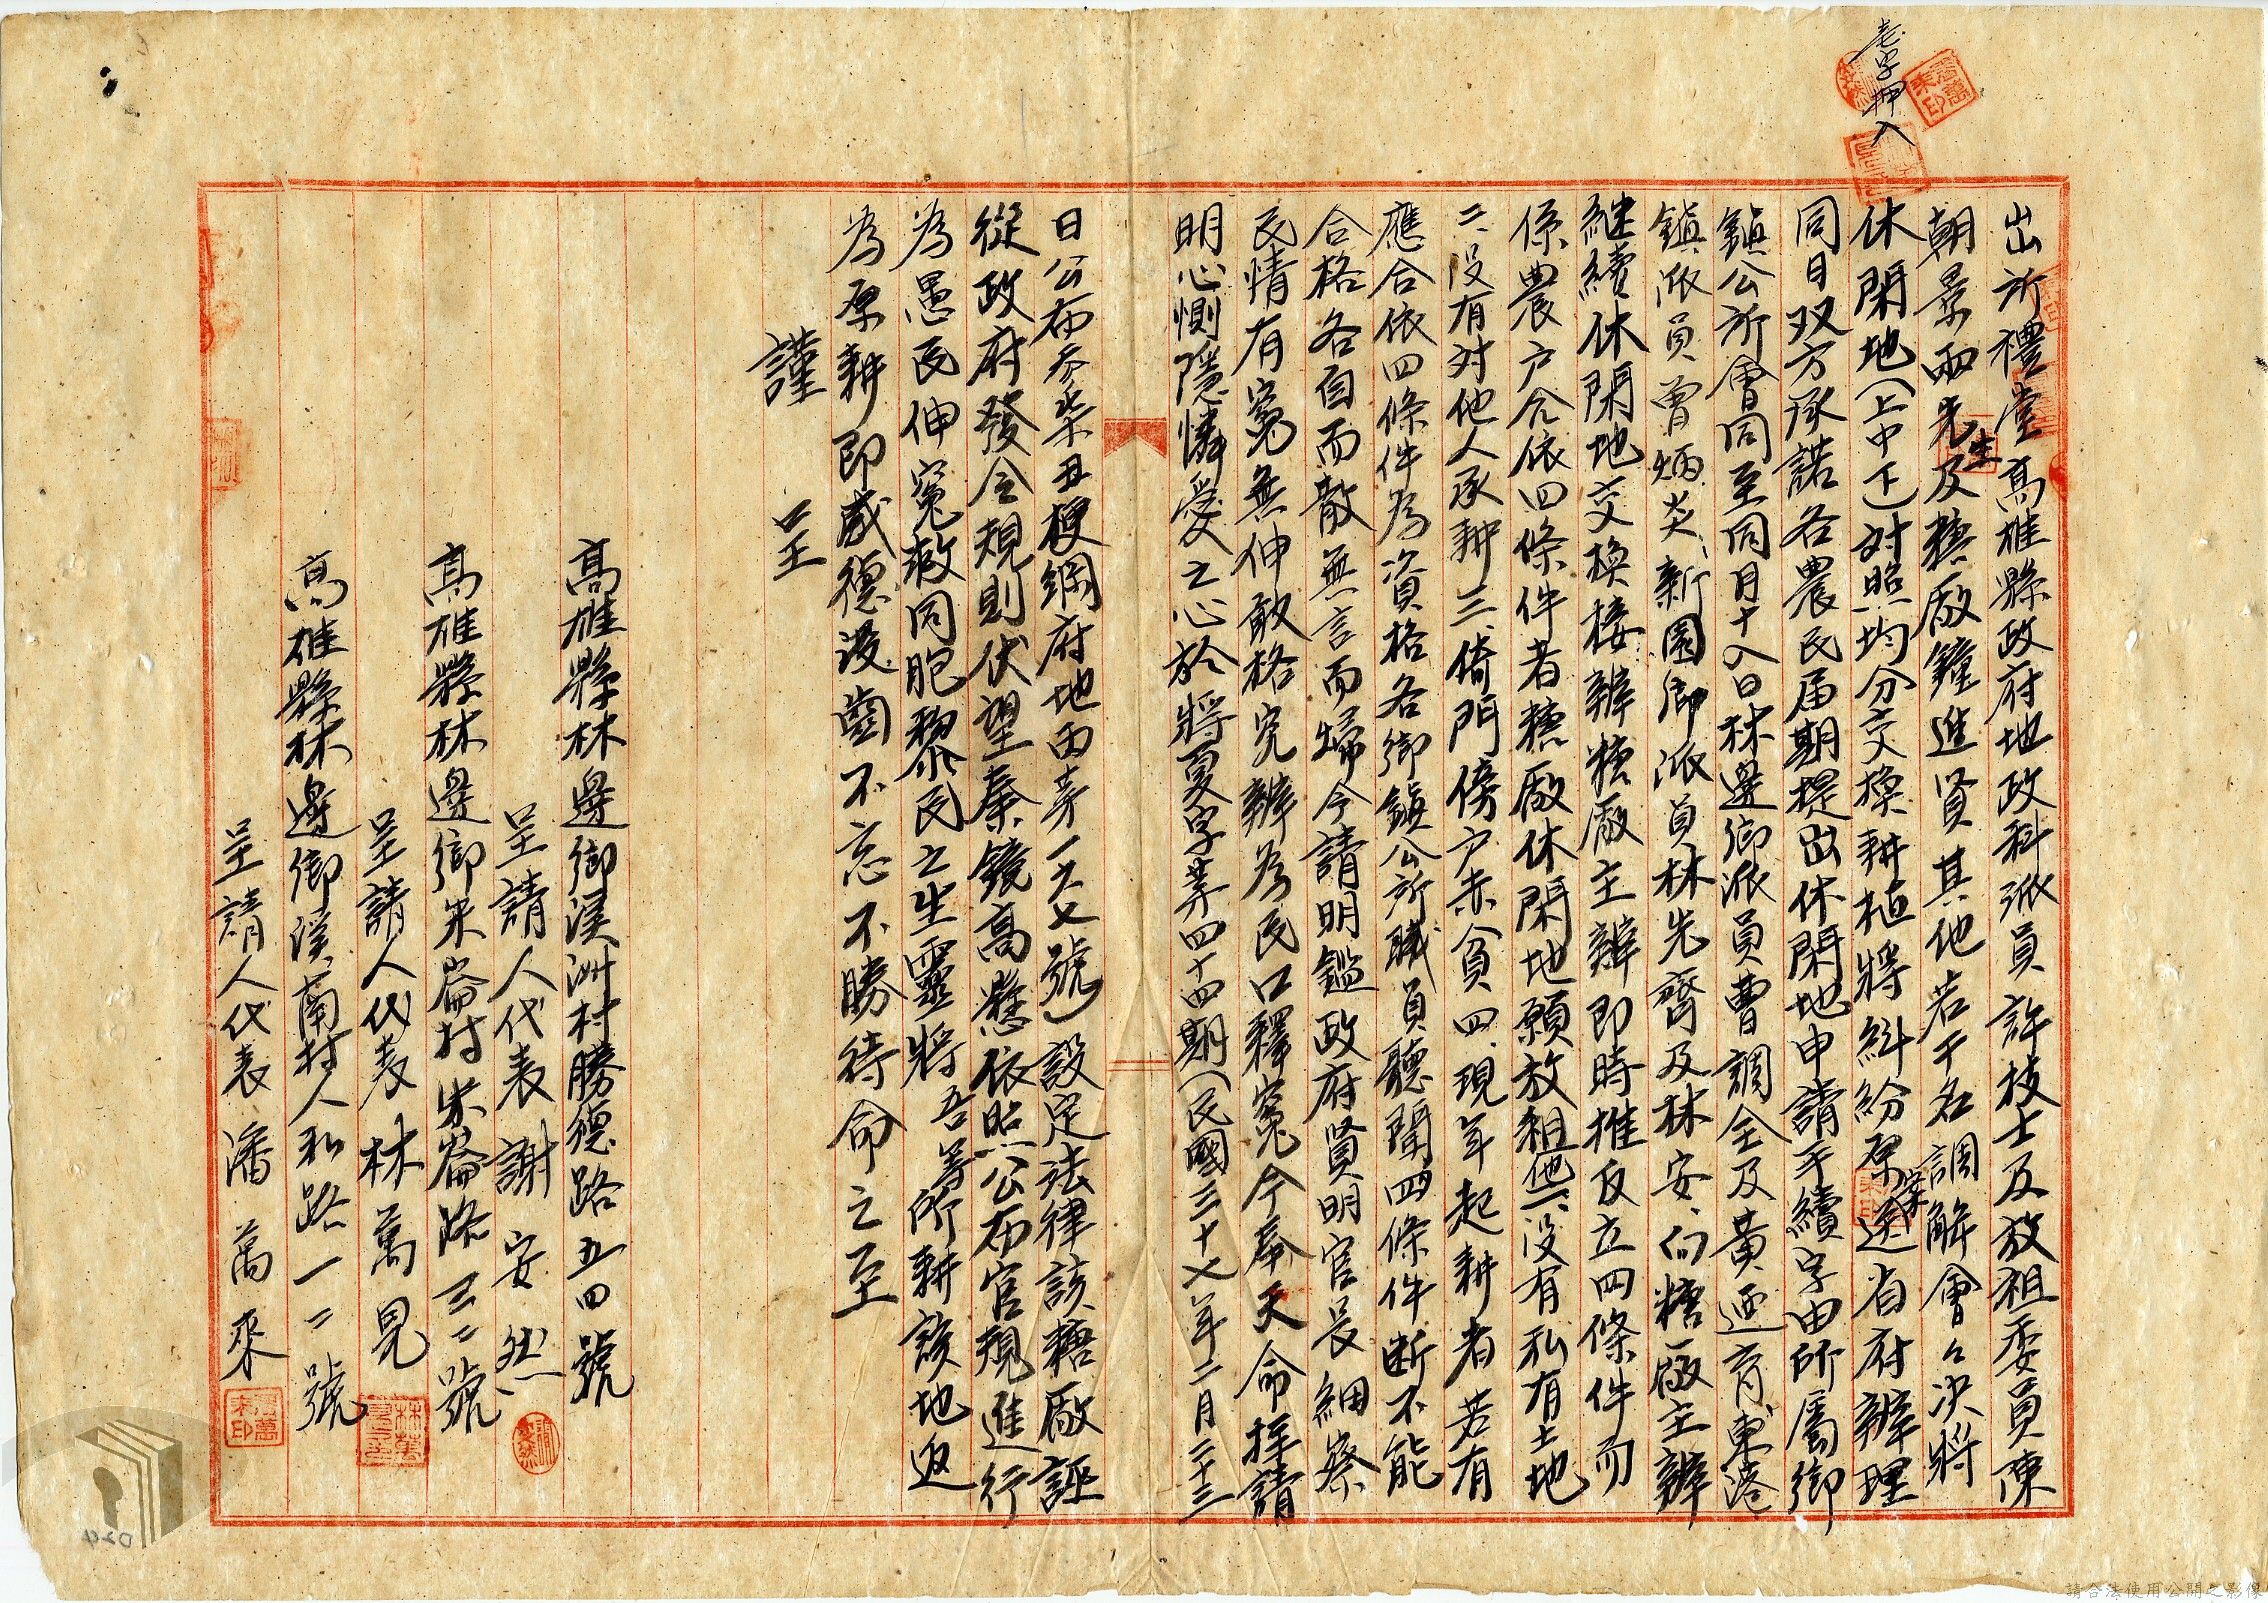 壱字押入
出所禮堂高雄縣政府地政科派員許技士及放租委員陳
朝景兩先生及糖廠鐘進賢其他若干名調解會々決將
休閑地(上中下)對照均分交換耕植將糾紛原案送省府辦理
同日双方承諾各農民届期提出休閑地申請手續字由所屬鄉
鎮公所會同至同月十八日林邊鄉派員曹調全及黃迺育東港
鎮派員曾炳炎新園鄉派員林先齊及林安、向糖廠主辦
継續休閑地交換接辦糖廠主辦即時推反立四條件而
係農户合依四條件者糖廠休閑地願放租他一、没有私有土地
二、没有对他人承耕三、倚門傍户赤貧四、現年起耕者若有
應合依四條件為資格各鄉鎮公所職員聽聞四條件断不能
合格各自而散無言而歸今請明鑑政府賢明官長細察
民情有冤無伸敢格究辦為民口釋冤今奉天命择請
明心惻隱憐愛之心於將夏字苐四十四期(民國三十七年二月二十三
日公布参柒丑梗綱府地丙苐一六七號)設定法律該糖廠誣
從政府發令規則伏望秦鏡高懸依照公布官規進行
為愚民伸冤救同胞黎民之生靈將吾等所耕該地返
為原耕即感德没齒不忘不勝待命之至
謹
呈
高雄縣林邊鄉溪洲村勝德路五四號
呈請人代表 謝安然
高雄縣林邊鄉米崙村米崙路三二號
呈請人代表 林萬見
高雄縣林邊鄉溪南村人和路一二號
呈請人代表 潘萬來
潘萬來印
024
請合法使用公開之影像